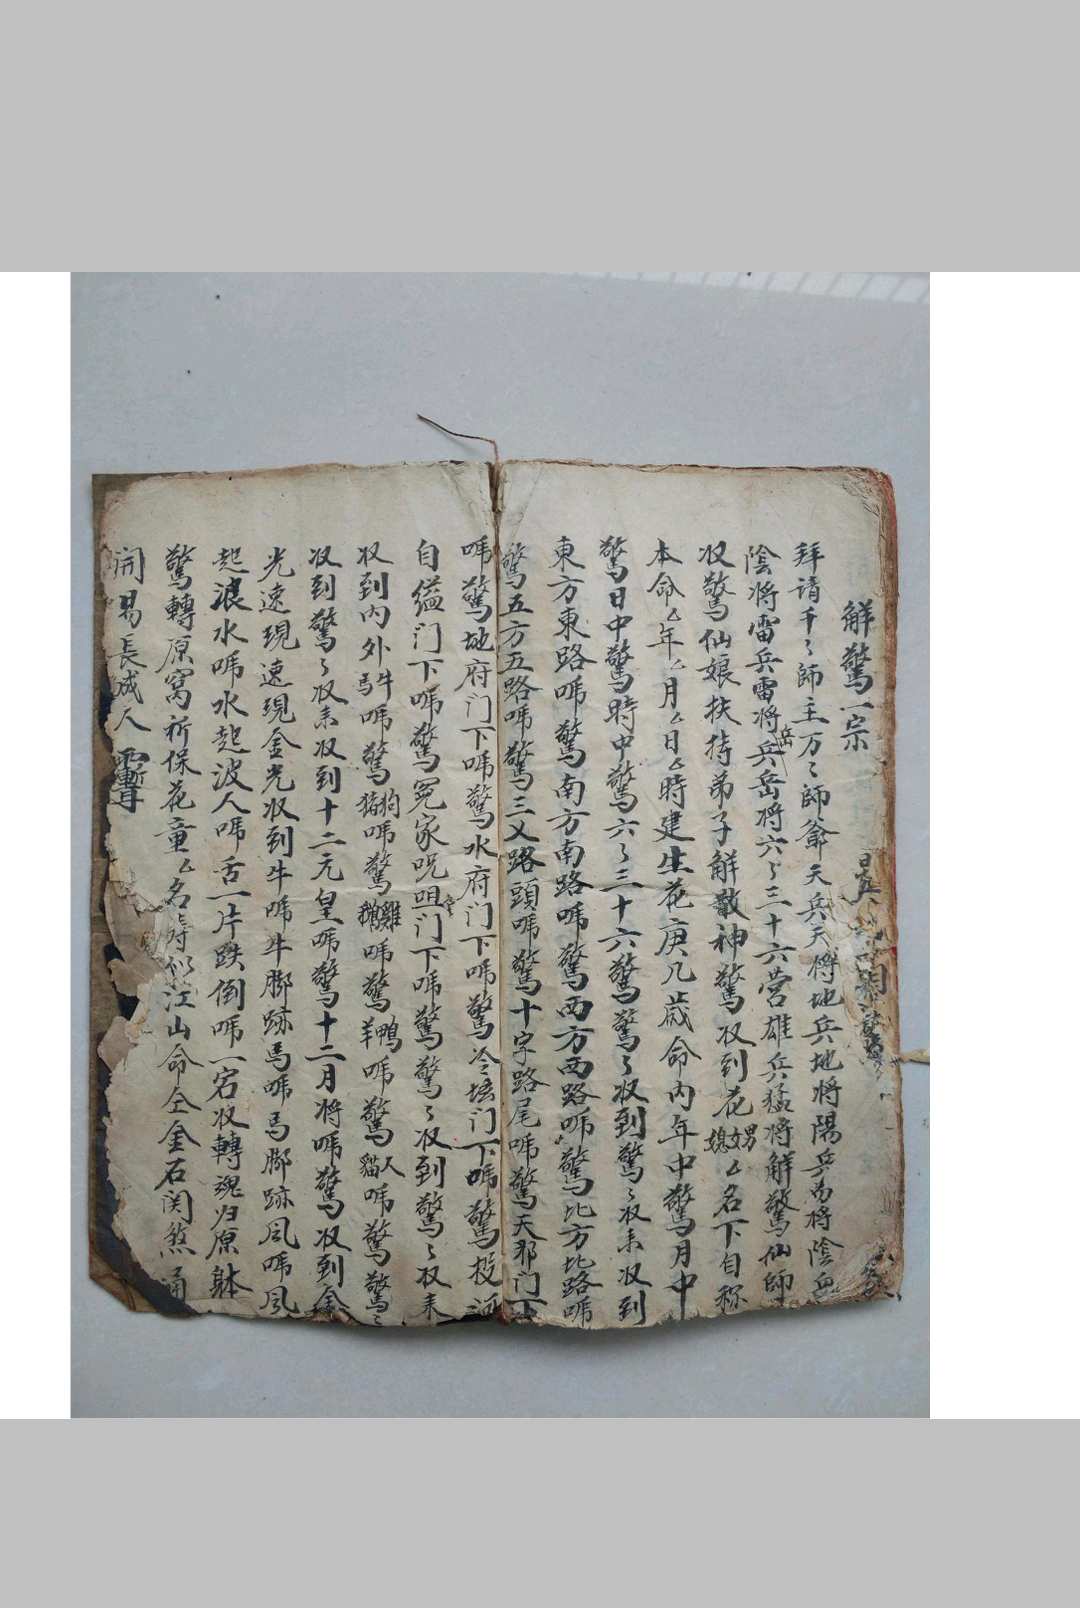 解驚一宗
拜请千〻師主万〻師爺天兵天将地兵地将陽兵为将陰兵
陰将雷兵雷将兵岳将六〻三十六营雄兵猛将解驚仙師
収驚仙娘扶持弟子解散神驚収到花男女媳厶名下自称
本命厶年厶月厶日厶時建生花庚几歲命内年中驚月中
驚日中驚時中驚六〻三十六驚驚〻収到驚〻収来収到
東方東路嚇驚南方南路嚇驚西方西路嚇驚北方北路嚇
驚五方五路嚇驚三义路頭嚇驚十字路尾嚇驚天那门下
嚇驚地府门下嚇驚水府门下嚇驚冷坛门下嚇驚投河
自缢门下嚇驚冤家咒咀门下嚇驚驚〻収到驚〻収来
収到内外牛馬嚇驚狗猪嚇驚雞鵝嚇驚鴨羊嚇驚人貓嚇驚驚〻
収到驚〻収来収到十二元皇嚇驚十二月将嚇驚収到金
光速現速現金光収到牛嚇牛脚跡馬嚇馬脚跡風嚇風
起浪水嚇水起波人嚇舌一片跌倒嚇一宕収轉魂归原躰
驚轉原窝祈保花童厶名壽似江山命仝金石関煞通
開易長成人